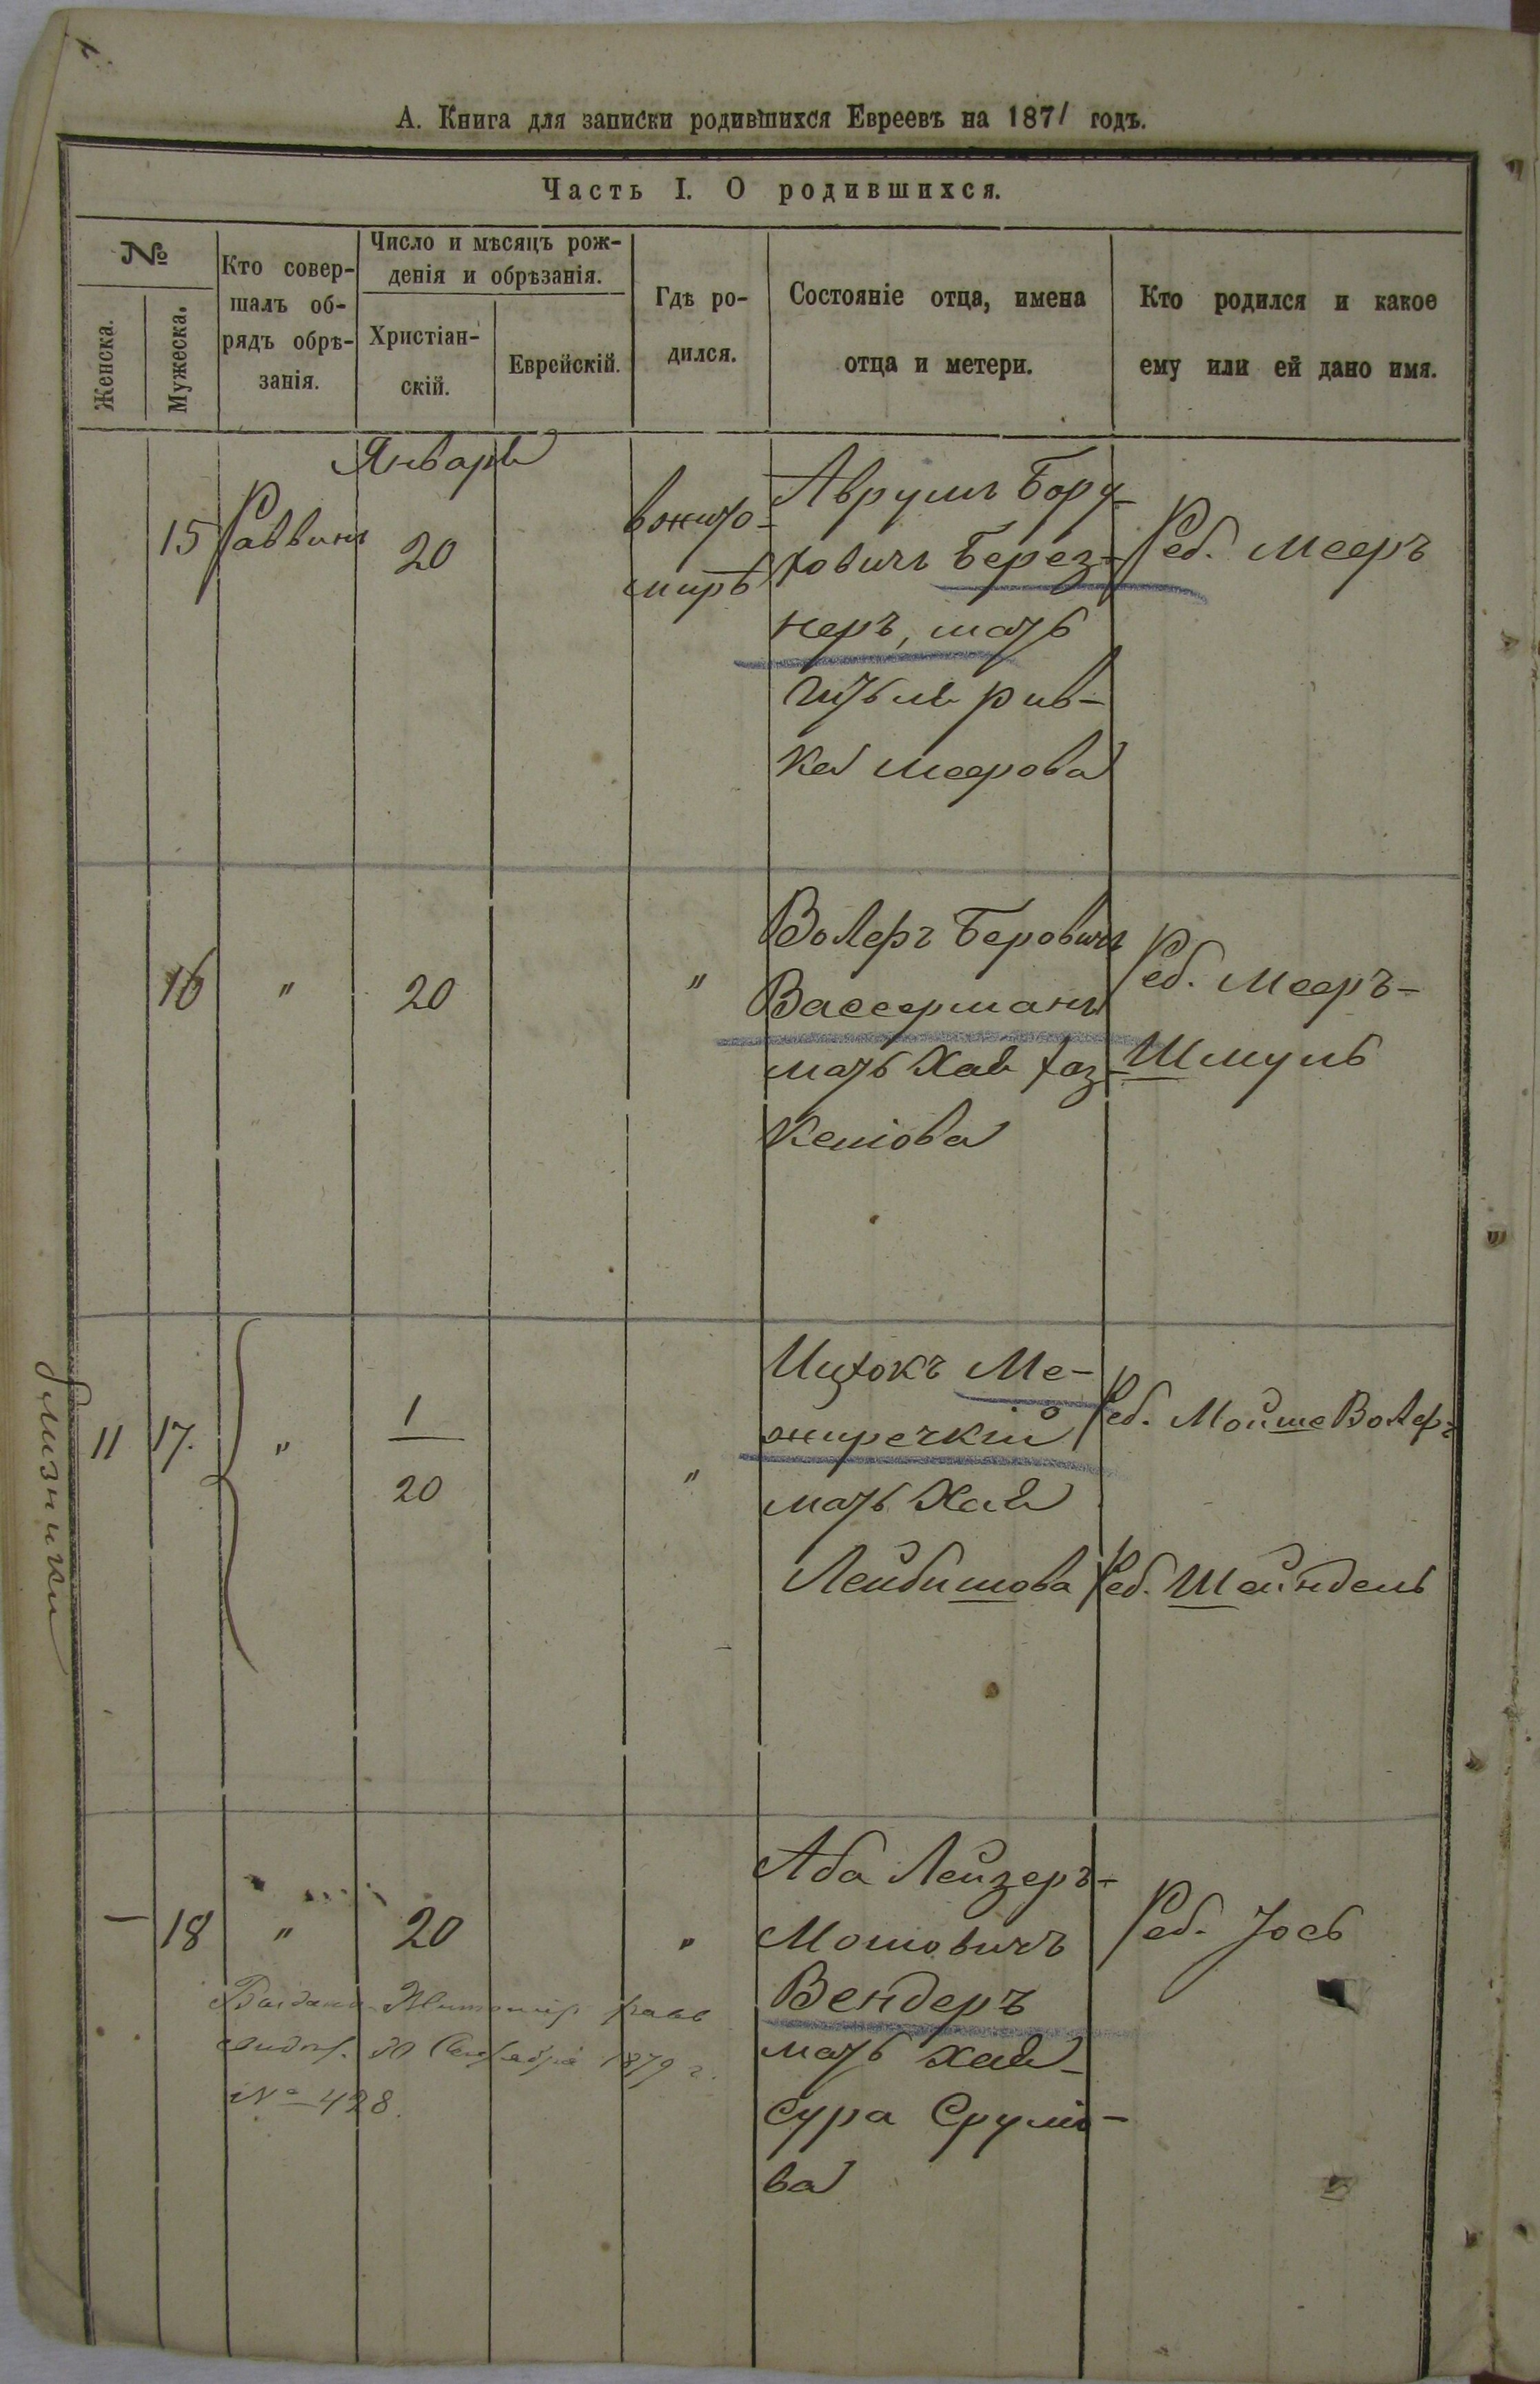 А. Книга для записки родившихся Евреевъ на 1871 годъ.
Часть I. О родившихся.
№
Женска.
Мужеска.
Кто совер-
шалъ об-
рядъ обрѣ-
занія.
Число и мѣсяцъ рож-
денія и обрѣзанія.
Христіан-
скій.
Еврейскій.
Гдѣ ро-
дился.
Состояніе отца, имена
отца и метери.
Кто родился и какое
ему или ей дано имя.
Января
15 Раввинъ 20
в Жито-
мирѣ
Аврумъ Бору-
ховичъ Берез-
неръ, мать
Гитля Рив-
ка Меерова
Реб. Мееръ
16 " 20 "
Волфъ Беровичъ
Вассерманъ
мать Хая Хаз-
келіова
Реб. Мееръ-
Шмуль
близнички
11 17. " 1
20 "
Ицхокъ Ме-
жиречкій
мать Хая
Лейбишова
Реб. Мойше Волфъ
Реб. Шейндель
— 18 " 20 "
Аба Лейзеръ-
Мошовичъ
Вендеръ
мать Хая-
Сура Срулio-
ва
Реб. Іось
1879 г.
№ 428.